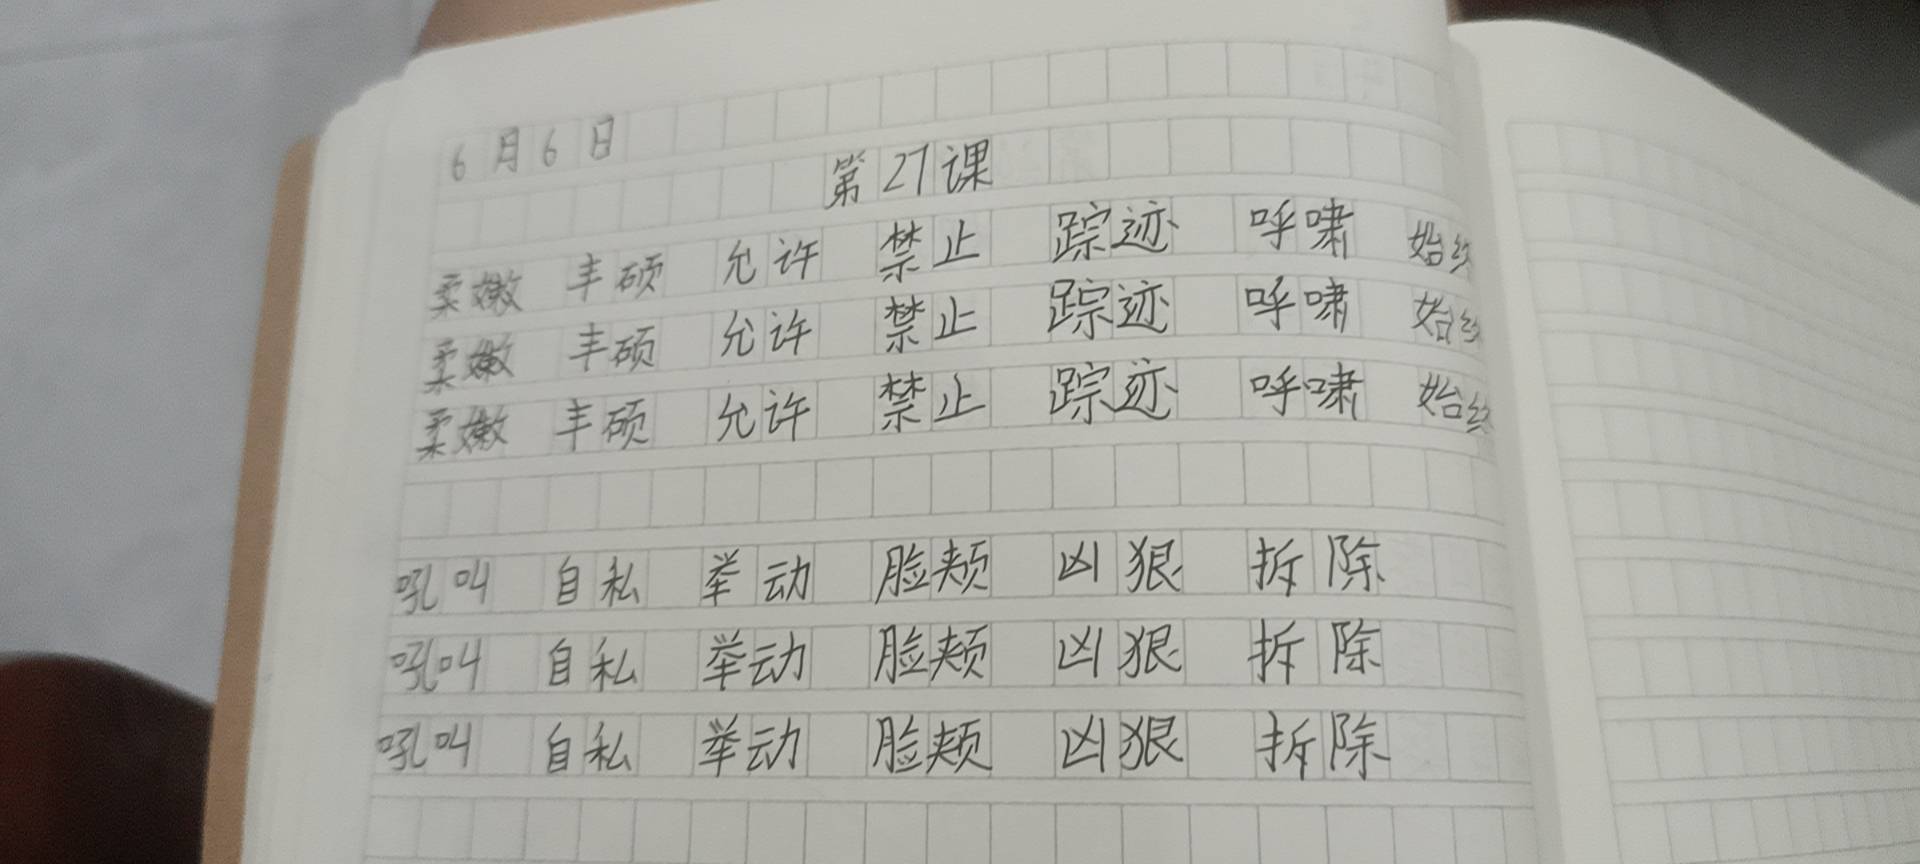 6月6日
第27课
柔嫩 丰硕 允许 禁止 踪迹 呼啸 始终
柔嫩 丰硕 允许 禁止 踪迹 呼啸 始终
柔嫩 丰硕 允许 禁止 踪迹 呼啸 始终
吼叫 自私 举动 脸颊 凶狠 拆除
吼叫 自私 举动 脸颊 凶狠 拆除
吼叫 自私 举动 脸颊 凶狠 拆除